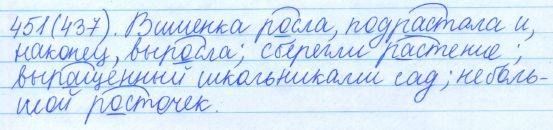 451(437). Вишенка росла, подрастала и,
наконец, выросла; сберегли растение;
выращенный школьниками сад; неболь-
шой росточек.